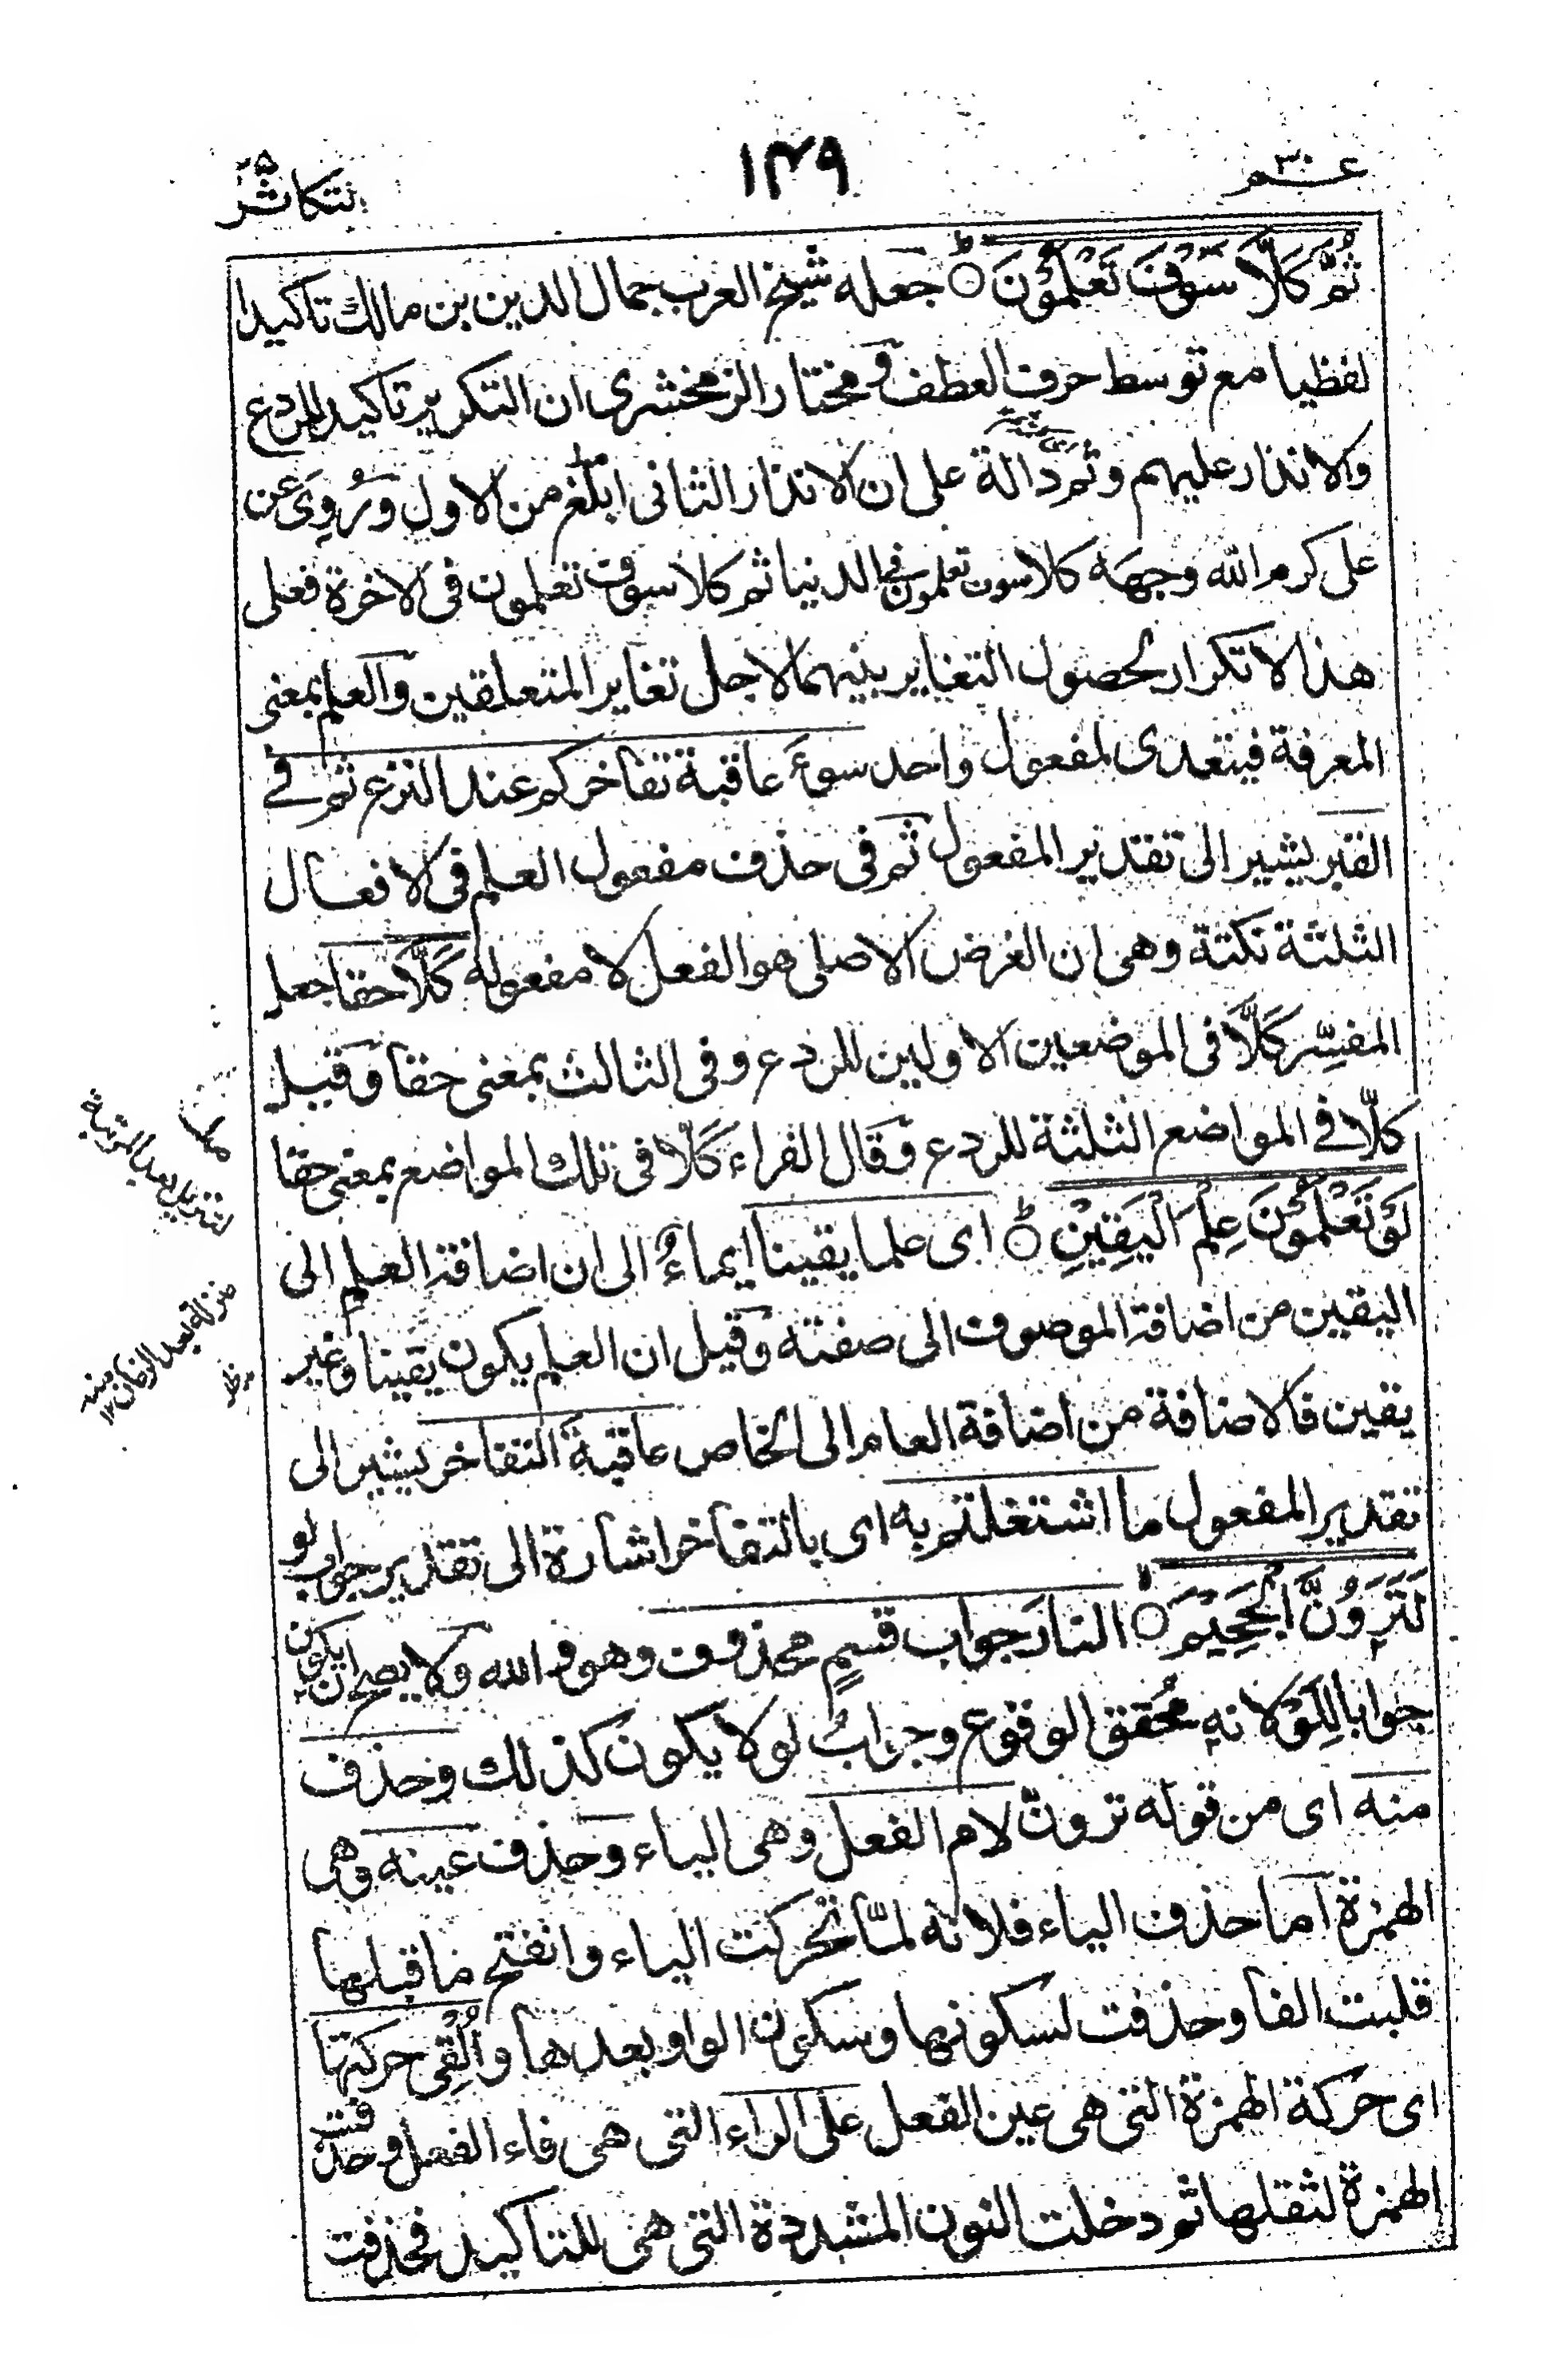 عـــم ٣٠
١٤٩
تكاثر
ثُمَّ كَلَّا سَوْفَ تَعْلَمُوْنَ ○ جعله شيخ العرب جمال الدين بن مالك تاكيدا
لفظيا مع توسط حرف العطف ومختار الزمخشرى ان التكرير تاكيد للردع
والانذار عليهم وثم دالة على ان الانذار الثانى ابلغ من الاول وَرُوِىَ عن
على كرم الله وجهه كلا سوف تعلمون فى الدنيا ثم كلا سوف تعلمون فى الاخرة فعلى
هذا لا تكرار لحصول التغاير بينهما لاجل تغاير المتعلقين والعلم بمعنى
المعرفة فيتعدى لمفعول واحد سوءَ عاقبة تفاخركم عند النزع ثم فے
القبر يشير الى تقدير المفعول ثم فى حذف مفعول العلم فى الافعال
الثلثة نكتة وهى ان الغرض الاصلى هو الفعل لا مفعوله كَلَّا حقا جعل
المفسِّر كَلَّا فى الموضعين الاولين للردع وفى الثالث بمعنى حقا وقيل
كلّا فے المواضع الثلثة للردع وقال الفراء كَلَّا فى تلك المواضع بمعنى حقا
لَوْ تَعْلَمُوْنَ عِلْمَ الْيَقِيْنِ ○ اى علما يقينا ايماءٌ الى ان اضافة العلم الى
اليقين من اضافة الموصوف الى صفته وقيل ان العلم يكون يقينا وغير
يقين فالاضافة من اضافة العام الى الخاص عاقبة التفاخر يشير الى
تقدير المفعول ما اشتغلتم به اى بالتفاخر اشارة الى تقدير جواب لو
لَتَرَوُنَّ الْجَحِيْمَ ○ النارَ جواب قسمٍ محذوف وهو والله ولا يصح ان يكون
جوابا لِلَوْ لانه مُحقق الوقوع وجوابُ لو لا يكون كذلك وحذف
منه اى من قوله ترونّ لام الفعل وهى الياء وحذف عينه وهى
الهمزة اما حذف الياء فلانه لمّا تحركت الياء وانفتح ما قبلها
قلبت الفا وحذفت لسكونها وسكون الواو بعدها وأُلْقِى حركتها
اى حركة الهمزة التى هى عين الفعل على الراء التى هى فاء الفعل وحذفت
الهمزة لثقلها ثم دخلت النون المشددة التى هى للتاكيد فحذفت